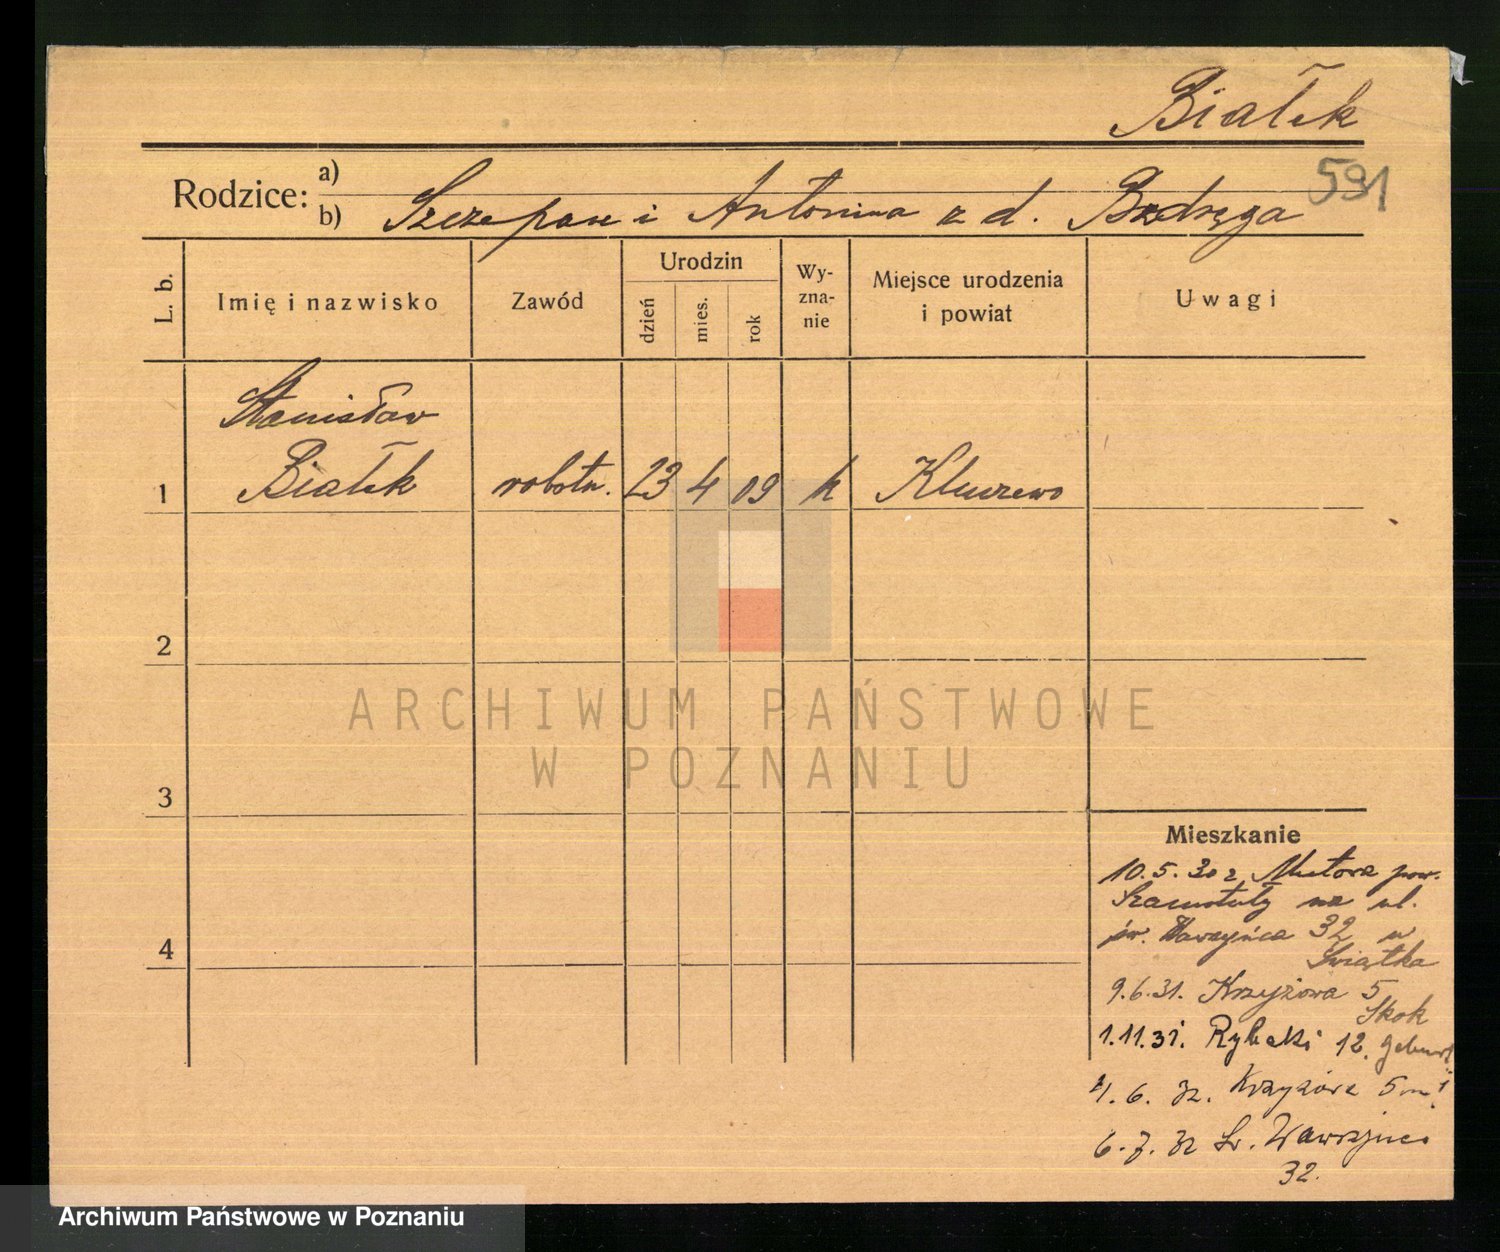 Białek
591
Rodzice: a)
b) Szczepan i Antonina z d. Bzdręga
L. b. Imię i nazwisko Zawód Urodzin dzień mies. rok Wy-zna-nie Miejsce urodzenia i powiat Uwagi
Stanisław
1 Białek robotn. 23 4 09 k Kluczewo
2
ARCHIWUM PAŃSTWOWE
W POZNANIU
3
Mieszkanie
10.5.30 z pow.
Szamotuły na ul.
św. Wawrzyńca 32 u
Świątka
4
9.6.31. Krzyżowa 5
Skok
1.11.31. Rybaki 12.
4.6.32. Krzyżowa 5
6.7.32 Św. Wawrzyńca
32.
Archiwum Państwowe w Poznaniu